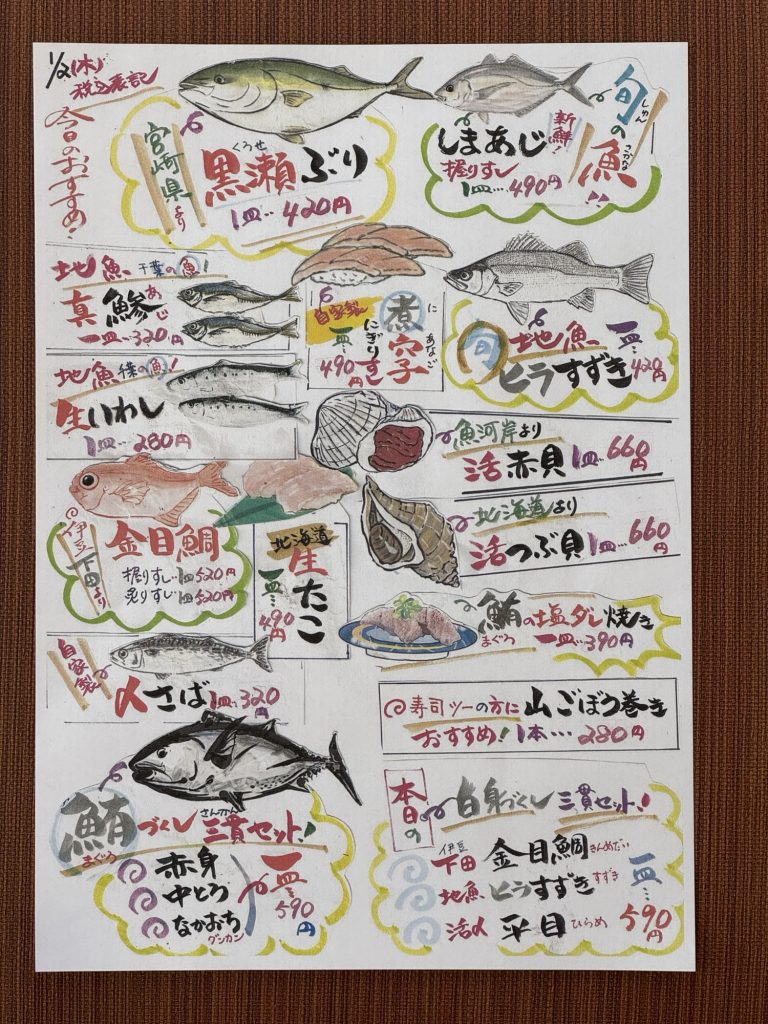 1/2(木)
税込表記
今日のおすすめ!
宮崎県より
くろせ
黒瀬ぶり
1皿‥420円
しまあじ
新鮮!
握りすし
1皿‥490円
しゅん
旬の魚!!
さかな
地魚 千葉の魚!
真鯵
あじ
一皿‥320円
地魚 千葉の魚!
生いわし
1皿‥280円
自家製
煮穴子
に あなご
にぎりすし
一皿‥490円
旬
地魚
ヒラすずき
一皿‥420円
魚河岸より
活赤貝 1皿‥660円
北海道より
活つぶ貝 1皿‥660円
伊豆下田より
金目鯛
握りすし‥1皿520円
炙りすし‥1皿520円
北海道
生たこ
一皿‥490円
鮪の塩ダレ焼き
まぐろ
一皿‥390円
自家製
〆さば 1皿‥320円
寿司ツーの方に
おすすめ!
山ごぼう巻き
1本‥‥280円
鮪づくし三貫セット!
まぐろ
さんかん
赤身
中とろ
なかおち
グンカン
一皿‥590円
本日の
白身づくし三貫セット!
伊豆
下田 金目鯛 きんめだい
地魚 ヒラすずき すずき
活〆 平目 ひらめ
一皿‥590円